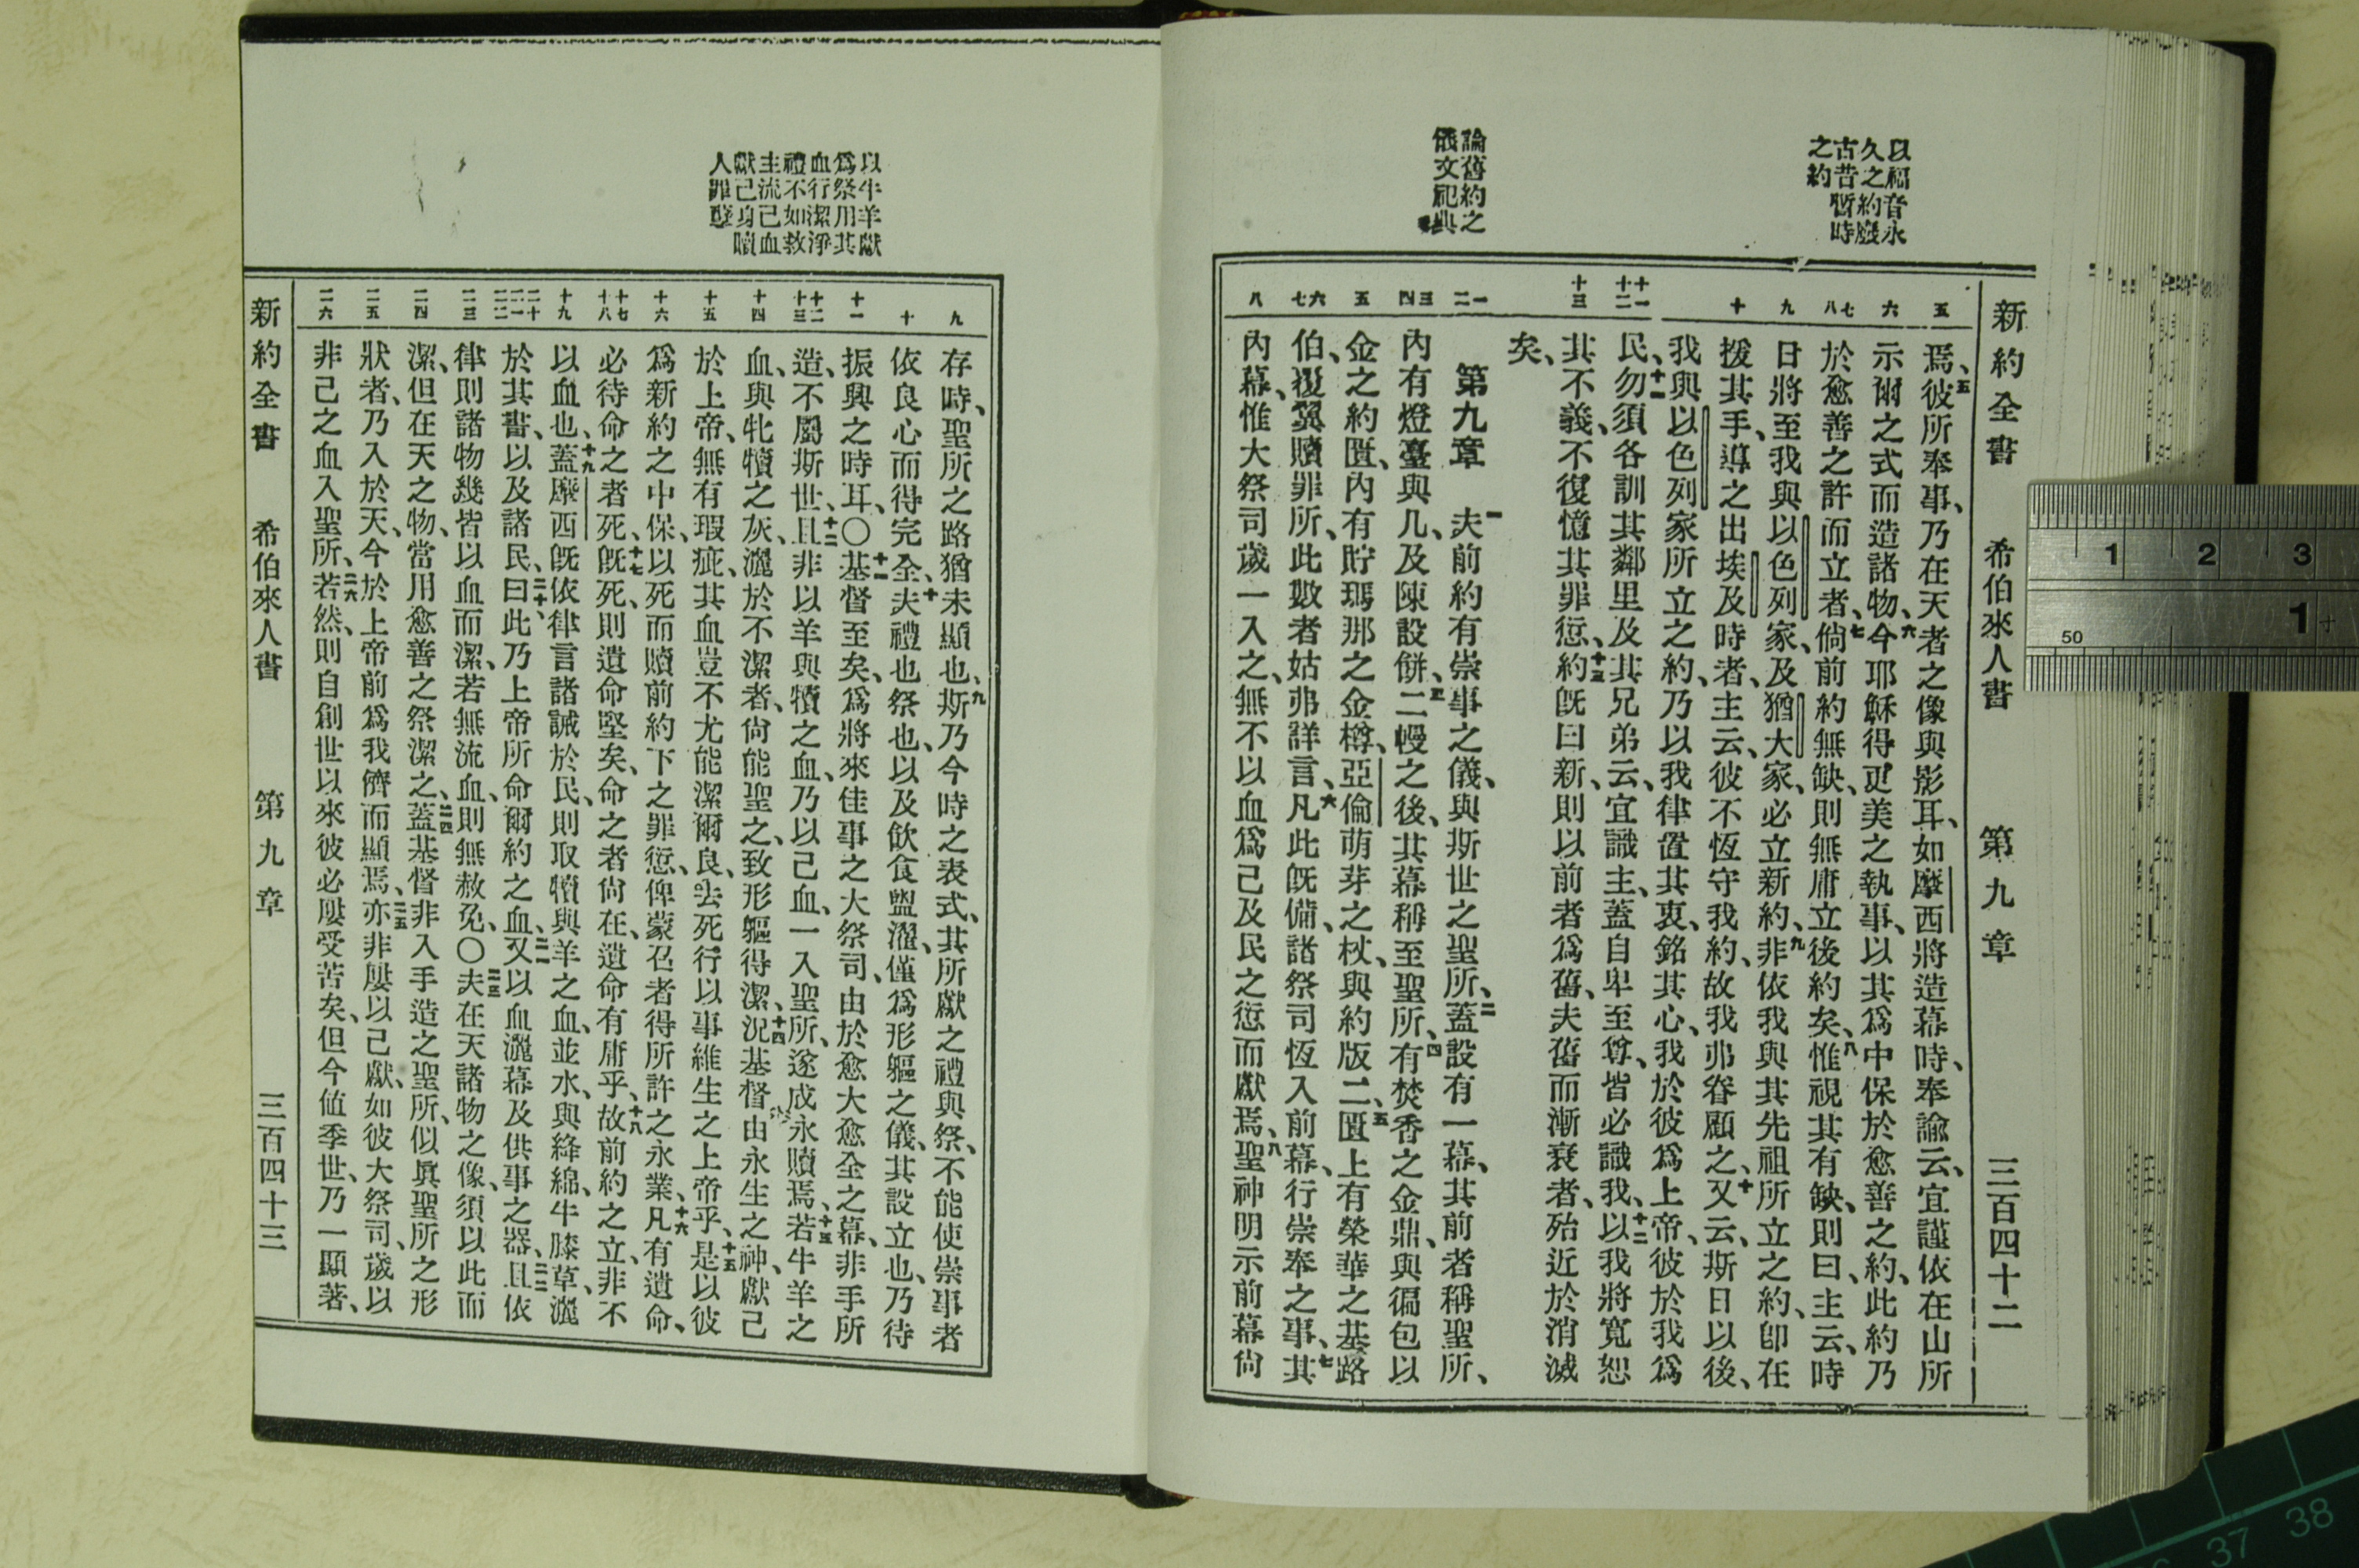 新約全書　希伯來人書　第九章　三百四十二
以福音永
久之約廢
古昔暫時
之約
論舊約之
儀文祀典
五
六
七
八
九
十
十一
十二
十三
一
二
三
四
五
六
七
八
焉、五彼所奉事、乃在天者之像與影耳、如摩西將造幕時、奉諭云、宜謹依在山所
示爾之式而造諸物、六今耶穌得更美之執事、以其爲中保於愈善之約、此約乃
於愈善之許而立者、七倘前約無缺、則無庸立後約矣、八惟視其有缺、則曰、主云、時
日將至我與以色列家、及猶大家、必立新約、九非依我與其先祖所立之約、卽在
援其手、導之出埃及時者、主云、彼不恆守我約、故我弗眷顧之、十又云、斯日以後、
我與以色列家所立之約、乃以我律置其衷、銘其心、我於彼爲上帝、彼於我爲
民、十一勿須各訓其鄰里及其兄弟云、宜識主、蓋自卑至尊、皆必識我、十二以我將寬恕
其不義、不復憶其罪愆、十三約旣曰新、則以前者爲舊、夫舊而漸衰者、殆近於消滅
矣、
第九章　一夫前約有崇事之儀、與斯世之聖所、二蓋設有一幕、其前者稱聖所、
內有燈臺與几、及陳設餅、三二幔之後、其幕稱至聖所、四有焚香之金鼎、與徧包以
金之約匱、內有貯瑪那之金樽、亞倫萌芽之杖、與約版二、五匱上有榮華之基路
伯、覆翼贖罪所、此數者姑弗詳言、六凡此旣備、諸祭司恆入前幕、行崇奉之事、七其
內幕、惟大祭司歲一入之、無不以血爲己及民之愆而獻焉、八聖神明示前幕尙
以牛羊獻
爲祭用其
血行潔淨
禮不如救
主流己血
獻己身贖
人罪孽
九
十
十一
十二
十三
十四
十五
十六
十七
十八
十九
二十
二一
二二
二三
二四
二五
二六
存時、聖所之路猶未顯也、九斯乃今時之表式、其所獻之禮與祭、不能使崇事者
依良心而得完全、十夫禮也祭也、以及飮食盥濯、僅爲形軀之儀、其設立也、乃待
振興之時耳、〇十一基督至矣、爲將來佳事之大祭司、由於愈大愈全之幕、非手所
造、不屬斯世、十二且非以羊與犢之血、乃以己血、一入聖所、遂成永贖焉、十三若牛羊之
血、與牝犢之灰、灑於不潔者、尙能聖之、致形軀得潔、十四況基督由永生之神、獻己
於上帝、無有瑕疵、其血豈不尤能潔爾良、去死行以事維生之上帝乎、十五是以彼
爲新約之中保、以死而贖前約下之罪愆、俾蒙召者得所許之永業、十六凡有遺命、
必待命之者死、十七旣死、則遺命堅矣、命之者尙在、遺命有庸乎、十八故前約之立、非不
以血也、十九蓋摩西旣依律言諸誡於民、則取犢與羊之血、並水、與絳綿、牛膝草、灑
於其書、以及諸民、二十曰、此乃上帝所命爾約之血、二一又以血灑幕及供事之器、二二且依
律則諸物幾皆以血而潔、若無流血、則無赦免、〇二三夫在天諸物之像、須以此而
潔、但在天之物、當用愈善之祭潔之、二四蓋基督非入手造之聖所、似眞聖所之形
狀者、乃入於天、今於上帝前爲我儕而顯焉、二五亦非屢以己獻、如彼大祭司、歲以
非己之血入聖所、二六若然、則自創世以來彼必屢受苦矣、但今値季世、乃一顯著、
新約全書　希伯來人書　第九章　三百四十三
1 2 3
1寸
50
37 38